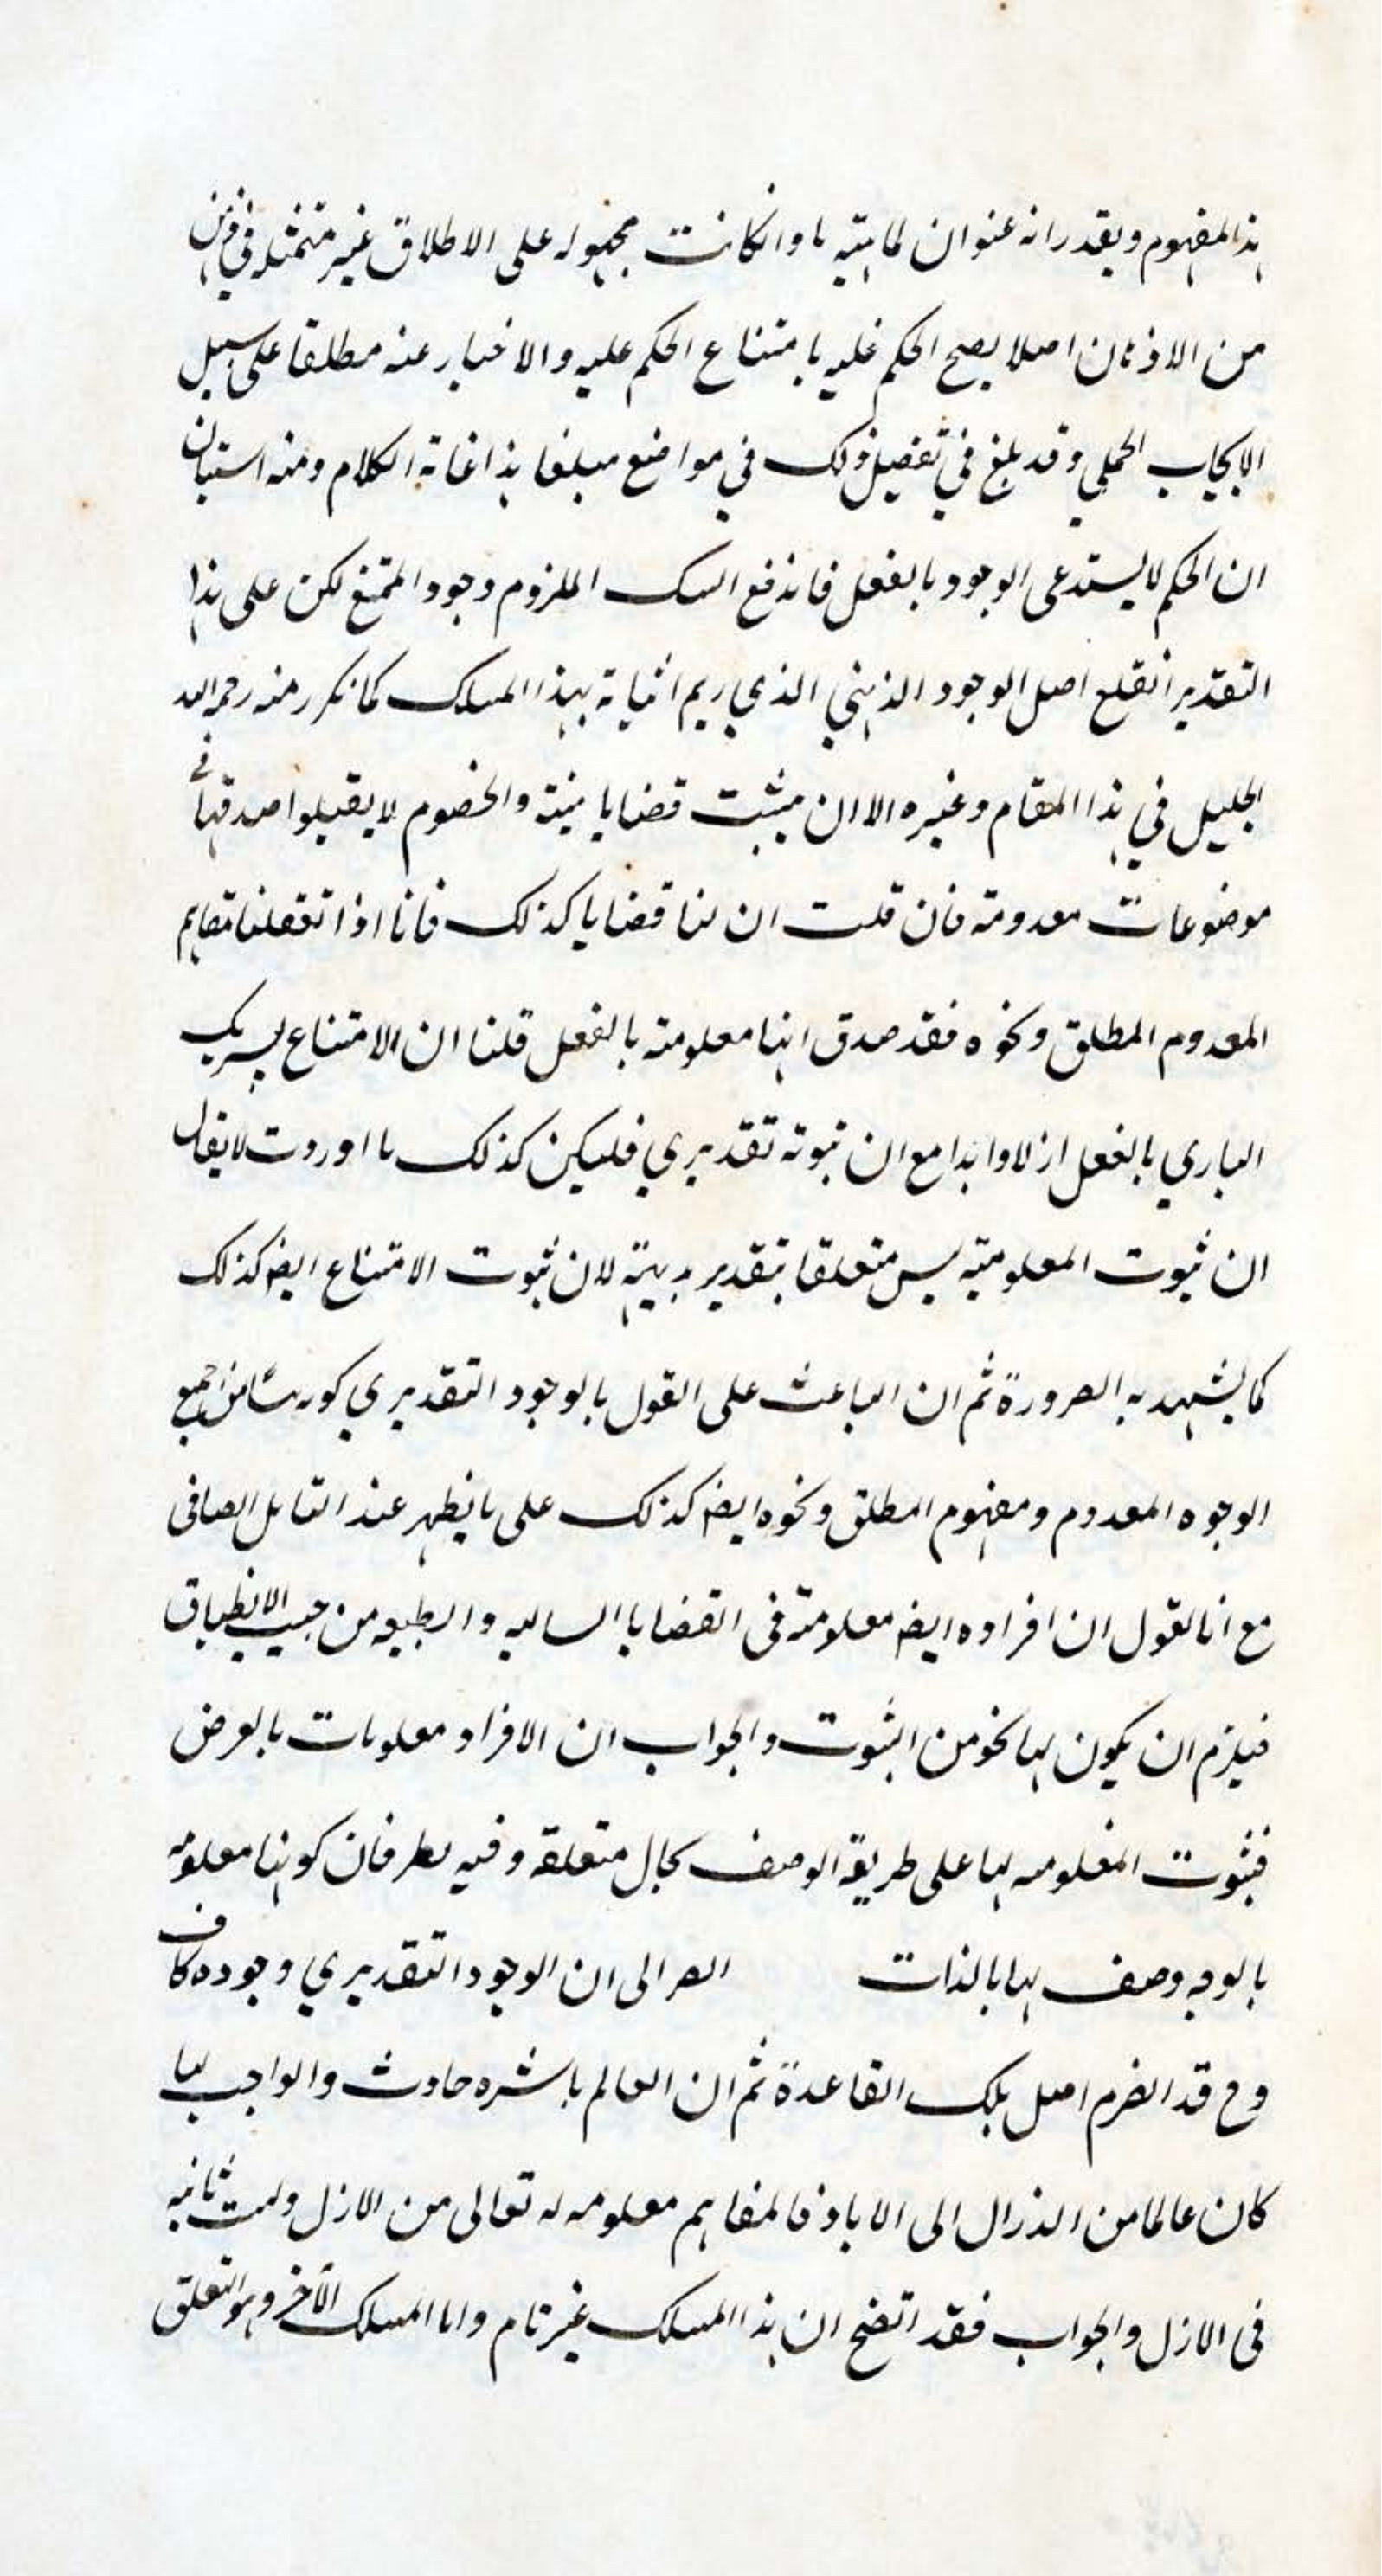 هذا المفهوم ويقدر انه عنوان لماهية ما وانكانت مجهوله على الاطلاق غير متمثله في ذهن
من الاذهان اصلا يصح الحكم عليه بامتناع الحكم عليه والاخبار عنه مطلقا على سبيل
الايجاب الحملي وقد بلغ في تفصيل ذلك في مواضع مبلغا هذا غاية الكلام ومنه استبان
ان الحكم لا يستدعى الوجود بالفعل فاندفع الشك الملزوم وجود الممتنع لكن على هذا
التقدير انقلع اصل الوجود الذهني الذي ريم اثباته بهذا المسلك كما تكرر منه رحمه الله
الجليل في هذا المقام وغيره الا ان يثبت قضايا بينة والخصوم لا يقبلوا صدقها في
موضوعات معدومة فان قلت ان لنا قضايا كذلك فانا اذا تعقلنا مفاهيم
المعدوم المطلق ونحوه فقد صدق انها معلومة بالفعل قلنا ان الامتناع لشريك
الباري بالفعل ازلا وابدا مع ان ثبوته تقديري فليكن كذلك ما اوردت لا يقال
ان ثبوت المعلومية ليس متعلقا بتقدير بديهة لان ثبوت الامتناع ايضا كذلك
كما يشهد به الضرورة ثم ان الباعث على القول بالوجود التقديري كونه من جميع
الوجوه المعدوم ومفهوم المطلق ونحوه ايضا كذلك على ما يظهر عند التامل الصافى
مع انا نقول ان افراده ايضا معلومة فى القضايا السالبه والطبيعه من حيث الانطباق
فيلزم ان يكون لها نحو من الثبوت والجواب ان الافراد معلومات بالعرض
فثبوت المعلوميه لها على طريقة الوصف بحال متعلقه وفيه نظر فان كونها معلومه
بالوجه وصف لها بالذات الى ان الوجود التقديري وجوده كاف
وح قد انصرم اصل تلك القاعدة ثم ان العالم باسره حادث والواجب لما
كان عالما من الازال الى الاباد فالمفاهيم معلومه له تعالى من الازل وليت ثانيه
فى الازل والجواب فقد اتضح ان هذا المسلك غير تام واما المسلك الآخر وهو التعلق